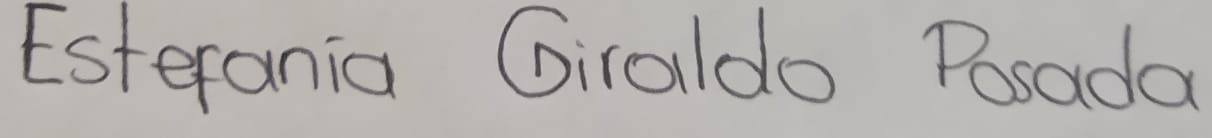 Estefania Giraldo Posada